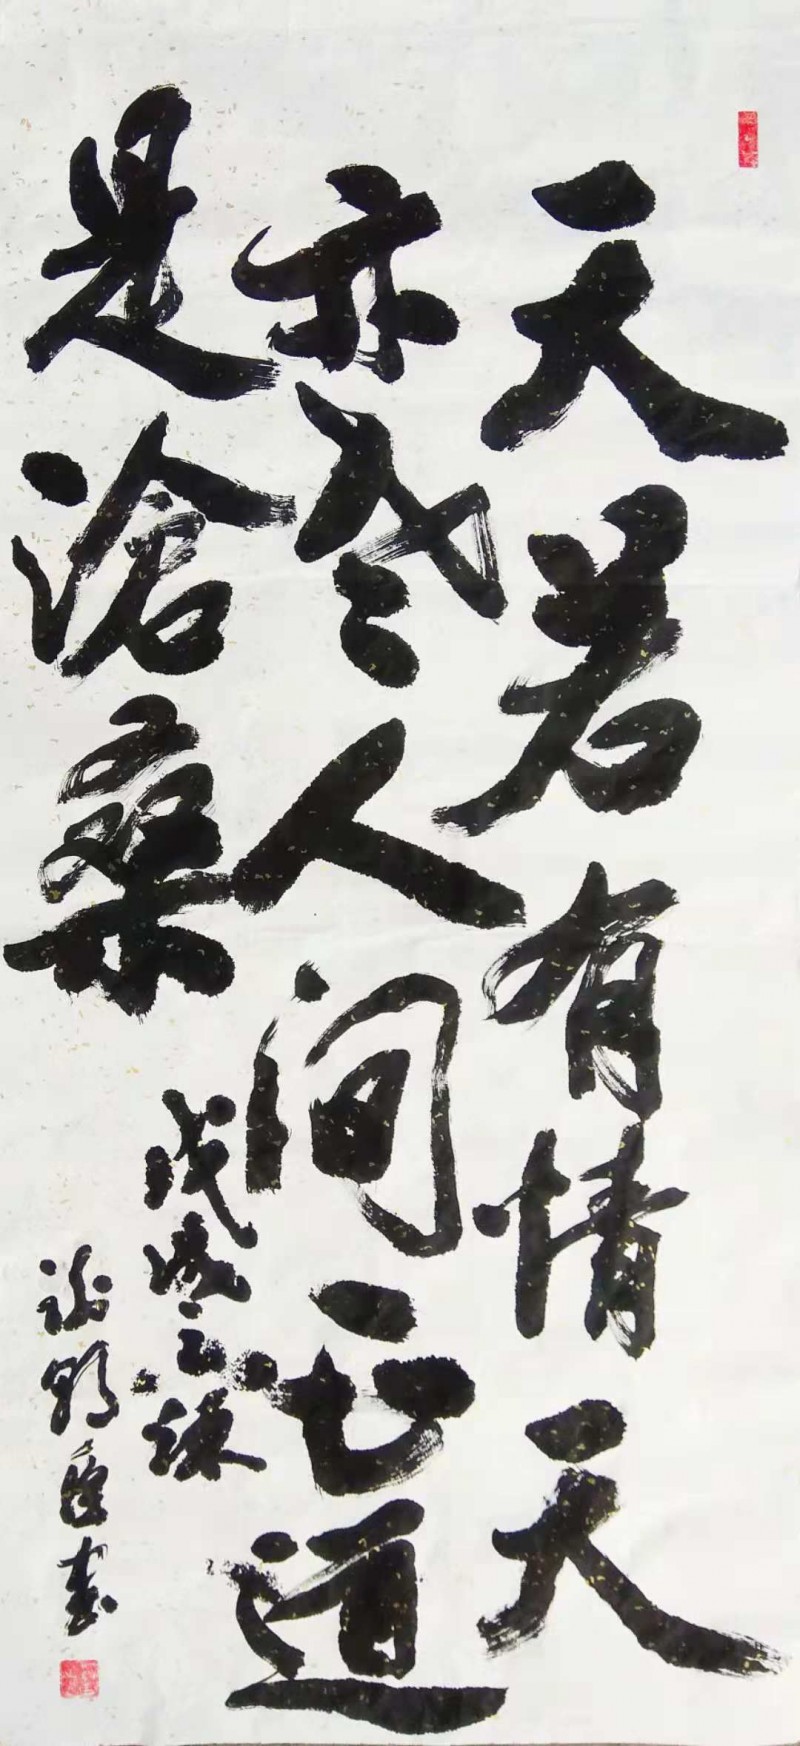 天若有情天
亦老人间正道
是滄桑
戊戌之秋
书